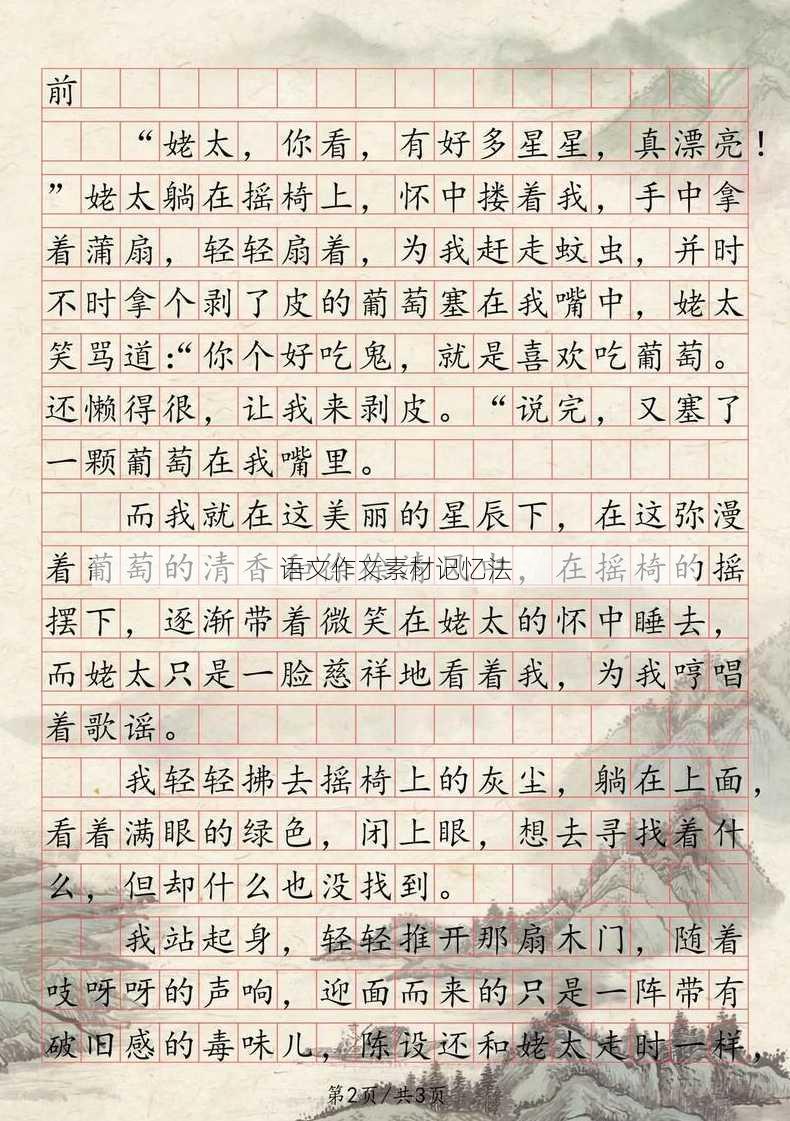 前
“姥太，你看，有好多星星，真漂亮！
”姥太躺在摇椅上，怀中搂着我，手中拿
着蒲扇，轻轻扇着，为我赶走蚊虫，并时
不时拿个剥了皮的葡萄塞在我嘴中，姥太
笑骂道：“你个好吃鬼，就是喜欢吃葡萄。
还懒得很，让我来剥皮。“说完，又塞了
一颗葡萄在我嘴里。
而我就在这美丽的星辰下，在这弥漫
着葡萄的清香，在摇椅的摇
语文作文素材记忆法
摆下，逐渐带着微笑在姥太的怀中睡去，
而姥太只是一脸慈祥地看着我，为我哼唱
着歌谣。
我轻轻拂去摇椅上的灰尘，躺在上面，
看着满眼的绿色，闭上眼，想去寻找着什
么，但却什么也没找到。
我站起身，轻轻推开那扇木门，随着
吱呀呀的声响，迎面而来的只是一阵带有
破旧感的毒味儿，陈设还和姥太走时一样，
第2页/共3页